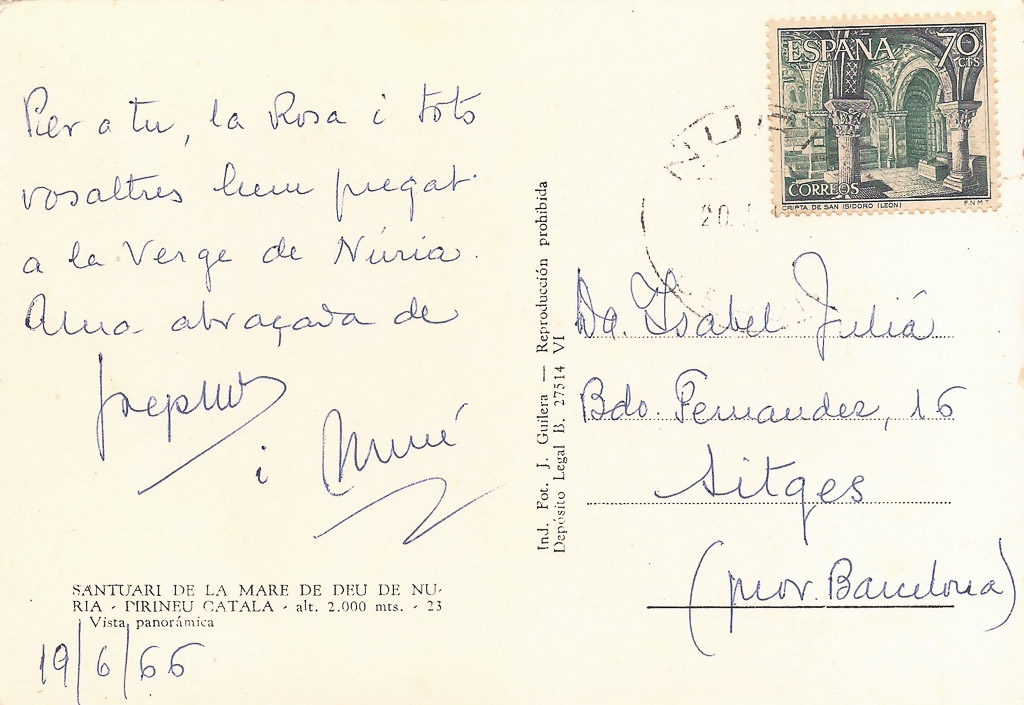 Per a tu, la Rosa i tots
vosaltres hem pregat
a la Verge de Núria.
Una abraçada de
i
SANTUARI DE LA MARE DE DEU DE NU-
RIA - PIRINEU CATALA - alt. 2.000 mts. - 23
Vista panorámica
19/6/66
Ind. Fot. J. Guilera — Reproducción prohibida
Depósito Legal B. 27514 VI
ESPAÑA 70 CTS
CORREOS
CRIPTA DE SAN ISIDORO (LEON) F.N.M.T.
NURIA
20.
Da. Isabel Juliá
Bdo. Fernandez, 16
Sitges
(prov. Barcelona)